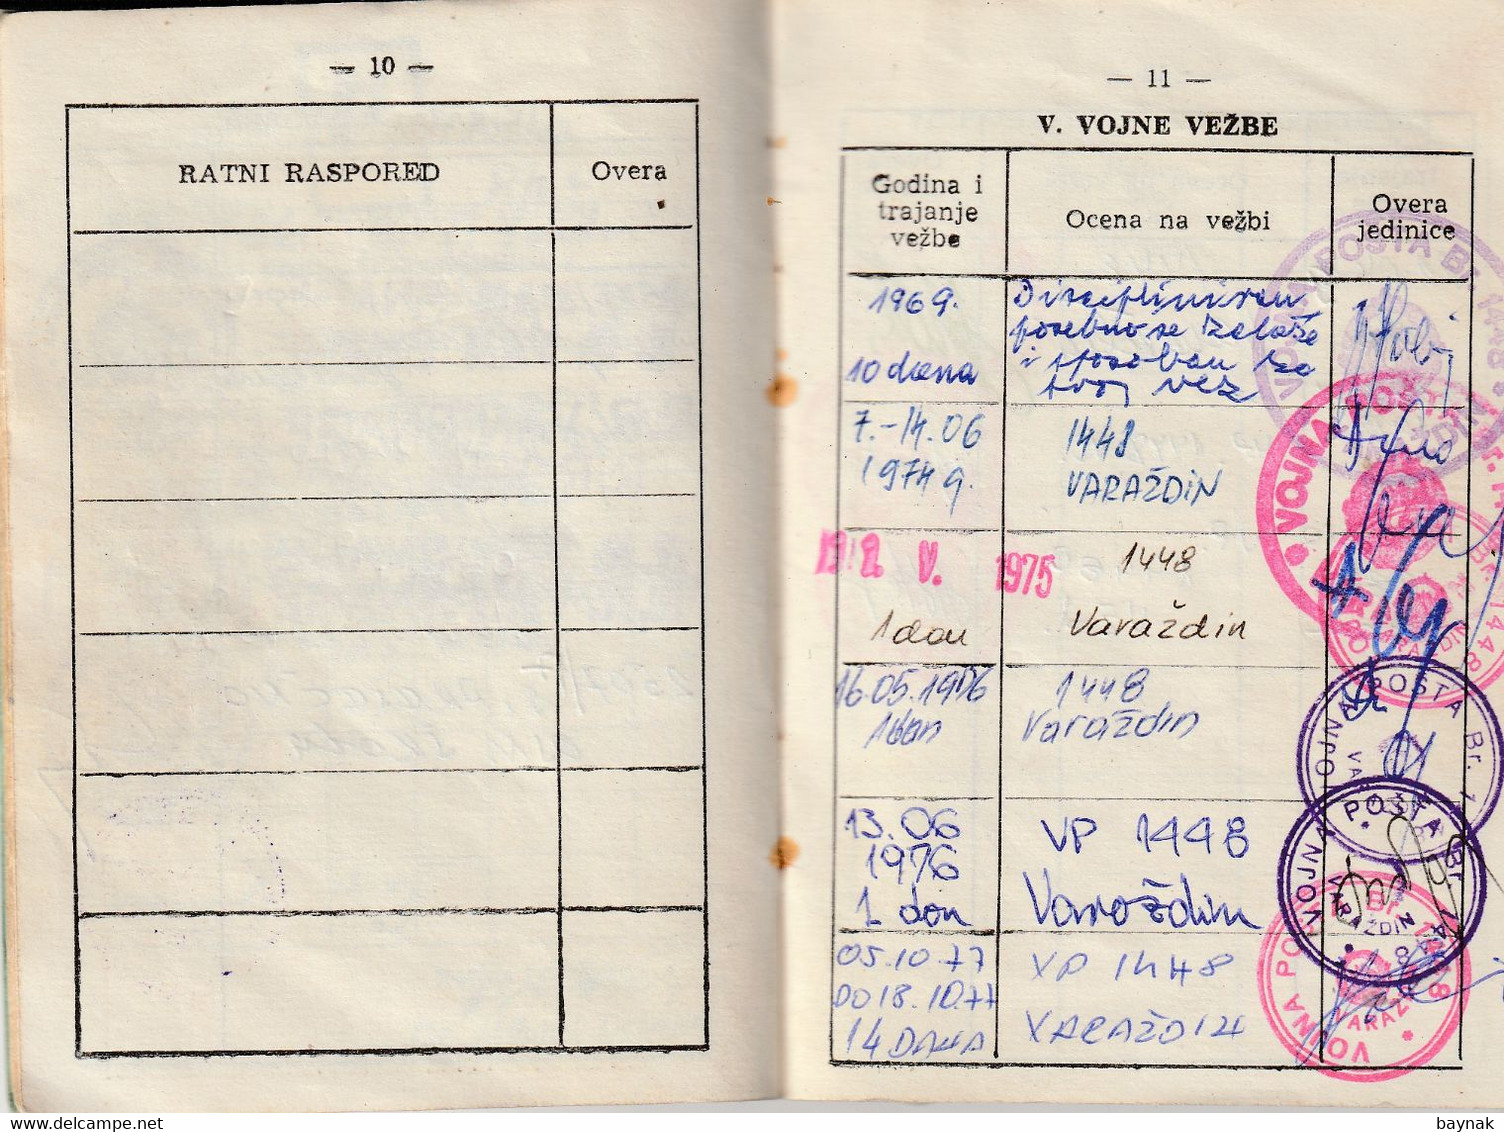 — 10 —
RATNI RASPORED
Overa
— 11 —
V. VOJNE VEŽBE
Godina i
trajanje
vežbe
Ocena na vežbi
Overa
jedinice
1969.
10 dana
Disciplinovan
posebno se zalaže
i sposoban za
svoj
7.-14.06
1974 g.
1448
VARAŽDIN
V. 1975
1 dan
1448
Varaždin
16.05.1976
1 dan
1448
Varaždin
13.06
1976
1 dan
VP 1448
Varaždin
05.10.77
DO 18.10.77
14 DANA
VP 1448
VARAŽDIN
VOJNA POŠTA Br. 1448
VARAŽDIN
VOJNA POŠTA Br. 1448
VARAŽDIN
VOJNA POŠTA Br. 1448
VARAŽDIN
baynak